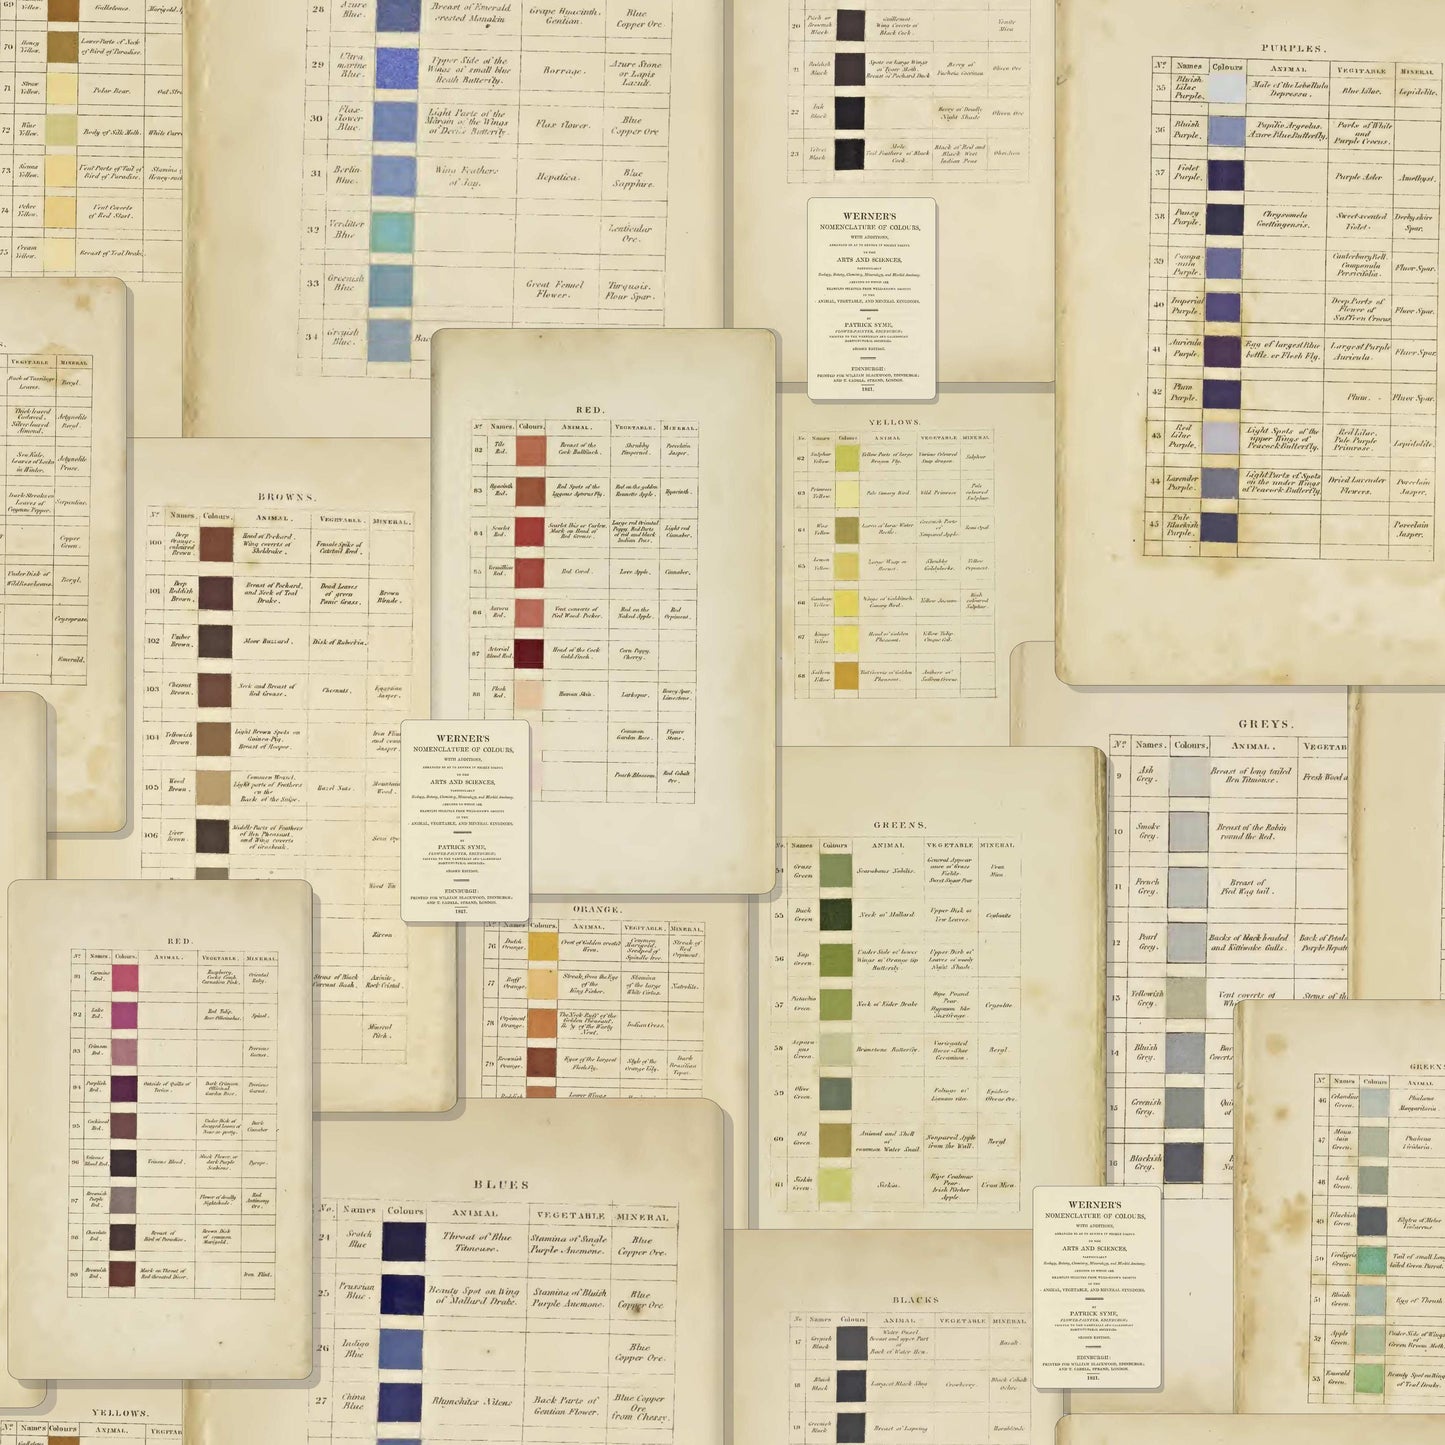 28
Azure
Blue.
Breast of Emerald
crested Manakin
Grape Hyacinth.
Gentian.
Blue
Copper Ore
29
Ultra
marine
Blue.
Upper Side of the
Wings of small blue
Heath Butterfly.
Borrage.
Azure Stone
or Lapis
Lazuli.
30
Flax-
flower
Blue.
Light Parts of the
Margin of the Wings
of Devil's Butterfly.
Flax flower.
Blue
Copper Ore
31
Berlin
Blue.
Wing Feathers
of Jay.
Hepatica.
Blue
Sapphire.
32
Verditter
Blue
Lenticular
Ore.
33
Greenish
Blue
Great Fennel
Flower.
Turquois.
Flour Spar.
34
Greyish
Blue.
Bac
70
Honey
Yellow.
Lower Parts of Neck
of Bird of Paradise.
71
Straw
Yellow.
Polar Bear.
Oat Stra
72
Wine
Yellow.
Body of Silk Moth.
White Curr
73
Sienna
Yellow.
Vent Parts of Tail of
Bird of Paradise.
74
Ochre
Yellow.
Vent Coverts
of Red Start.
75
Cream
Yellow.
Breast of Teal Drake.
21
Reddish
Black
22
Ink
Black
Berry of Deadly
Night Shade
Oliven Ore
23
Velvet
Black
Mole.
Tail Feathers of Black
Cock.
Black of Red and
Black West
Indian Peas
Obsidian
PURPLES.
No. Names Colours ANIMAL VEGETABLE MINERAL
35
Bluish
Lilac
Purple.
Male of the Libellula
Depressa.
Blue Lilac.
Lepidolite.
36
Bluish
Purple.
Papilio Argeolus.
Azure Blue Butterfly.
Parts of White
and
Purple Crocus.
37
Violet
Purple.
Purple Aster
Amethyst.
38
Pansy
Purple.
Chrysomela
Goettingensis.
Sweet-scented
Violet.
Derbyshire
Spar.
39
Campa-
nula
Purple.
Canterbury Bell.
Campanula
Persicifolia.
Fluor Spar.
40
Imperial
Purple.
Deep Parts of
Flower of
Saffron Crocus.
Fluor Spar.
41
Auricula
Purple.
Egg of largest Blue
bottle, or Flesh Fly.
Largest Purple
Auricula.
Fluor Spar.
42
Plum
Purple.
Plum.
Fluor Spar.
43
Red
Lilac
Purple.
Light Spots of the
upper Wings of
Peacock Butterfly.
Red Lilac.
Pale Purple
Primrose.
Lepidolite.
44
Lavender
Purple.
Light Parts of Spots
on the under Wings
of Peacock Butterfly.
Dried Lavender
Flowers.
Porcelain
Jasper.
45
Pale
Blackish
Purple.
Porcelain
Jasper.
WERNER'S
NOMENCLATURE OF COLOURS,
WITH ADDITIONS,
ARTS AND SCIENCES,
ANIMAL, VEGETABLE, AND MINERAL KINGDOMS.
BY
PATRICK SYME,
FLOWER-PAINTER, EDINBURGH;
SECOND EDITION.
EDINBURGH:
PRINTED FOR WILLIAM BLACKWOOD, EDINBURGH;
AND T. CADELL, STRAND, LONDON.
1821.
RED.
No. Names. Colours. ANIMAL. VEGETABLE. MINERAL.
82
Tile
Red.
Breast of the
Cock Bullfinch.
Shrubby
Pimpernel.
Porcelain
Jasper.
83
Hyacinth
Red.
Red Spots of the
Lygaeus Apterus Fly.
Red on the golden
Rennette Apple.
Hyacinth.
84
Scarlet
Red.
Scarlet Ibis or Curlew.
Mark on Head of
Red Grouse.
Large red Oriental
Poppy. Red Parts
of red and black
Indian Peas.
Light red
Cinnaber.
85
Vermillion
Red.
Red Coral.
Love Apple.
Cinnaber.
86
Aurora
Red.
Vent converts of
Pied Wood-Pecker.
Red on the
Naked Apple.
Red
Orpiment.
87
Arterial
Blood Red.
Head of the Cock
Gold-finch.
Corn Poppy.
Cherry.
88
Flesh
Red.
Human Skin.
Larkspur.
Heavy Spar.
Limestone.
Common
Garden Rose.
Figure
Stone.
Peach Blossom.
Red Cobalt
Ore.
YELLOWS.
No. Names Colours ANIMAL VEGETABLE MINERAL
62
Sulphur
Yellow.
Yellow Parts of large
Dragon Fly.
Various Coloured
Snap dragon.
Sulphur
63
Primrose
Yellow
Pale Canary Bird
Wild Primrose
Pale
coloured
Sulphur.
64
Wax
Yellow
Larva of large Water
Beetle.
Greenish Parts
of
Nonpareil Apple.
Semi Opal
65
Lemon
Yellow
Large Wasp or
Hornet.
Shrubby
Goldylocks.
Yellow
Orpiment
66
Gamboge
Yellow
Wings of Goldfinch.
Canary Bird.
Yellow Jasmine.
High
coloured
Sulphur.
67
Kings
Yellow
Head of Golden
Pheasant.
Yellow Tulip.
Cinque foil.
68
Saffron
Yellow
Tail Coverts of Golden
Pheasant.
Anthers of
Saffron Crocus.
BROWNS.
No. Names. Colours. ANIMAL. VEGETABLE. MINERAL.
100
Deep
Orange-
coloured
Brown.
Head of Pochard.
Wing coverts of
Sheldrake.
Female Spike of
Catstail Reed.
101
Deep
Reddish
Brown.
Breast of Pochard,
and Neck of Teal
Drake.
Dead Leaves
of green
Panic Grass.
Brown
Blende.
102
Umber
Brown.
Moor Buzzard.
Disk of Rubeckia.
103
Chesnut
Brown.
Neck and Breast of
Red Grouse.
Chesnuts.
Egyptian
Jasper.
104
Yellowish
Brown.
Light Brown Spots on
Guinea-Pig.
Breast of Hoopoe.
Iron Flint
and common
Jasper.
105
Wood
Brown.
Common Weasel.
Light parts of Feathers
on the
Back of the Snipe.
Hazel Nuts.
Mountain
Wood.
106
Liver
Brown.
Middle Parts of Feathers
of Hen Pheasant,
and Wing coverts
of Grosbeak.
Semi Opal
Wood Tin
Zircon
Stems of Black
Currant Bush.
Axinite.
Rock Cristal.
Mineral
Pitch.
VEGETABLE MINERAL
Beryl.
Actynolite
Beryl.
Actynolite
Prase.
Serpentine.
Copper
Green.
Beryl.
Crysoprase.
Emerald.
WERNER'S
NOMENCLATURE OF COLOURS,
WITH ADDITIONS,
ARTS AND SCIENCES,
ANIMAL, VEGETABLE, AND MINERAL KINGDOMS.
BY
PATRICK SYME,
FLOWER-PAINTER, EDINBURGH;
SECOND EDITION.
EDINBURGH:
PRINTED FOR WILLIAM BLACKWOOD, EDINBURGH;
AND T. CADELL, STRAND, LONDON.
1821.
GREYS.
No. Names. Colours. ANIMAL. VEGETAB
9
Ash
Grey.
Breast of long tailed
Hen Titmouse.
Fresh Wood a
10
Smoke
Grey.
Breast of the Robin
round the Red.
11
French
Grey.
Breast of
Pied Wag tail.
12
Pearl
Grey.
Backs of black headed
and Kittiwake Gulls.
Back of Petals
Purple Hepati
13
Yellowish
Grey.
Vent coverts of
Stems of th
14
Bluish
Grey.
15
Greenish
Grey.
16
Blackish
Grey.
GREENS.
No. Names Colours ANIMAL VEGETABLE MINERAL
54
Grass
Green
Scarabæus Nobilis.
General Appear
ance of Grass
Fields.
Sweet Sugar Pear
Uran
Mica.
55
Duck
Green
Neck of Mallard
Upper Disk of
Yew Leaves.
Ceylonite
56
Sap
Green
Under Side of lower
Wings of Orange tip
Butterfly
Upper Disk of
Leaves of woody
Night Shade.
57
Pistachio
Green
Neck of Eider Drake
Ripe Pound
Pear.
Hypnum like
Saxifrage.
Crysolite
58
Aspara-
gus
Green.
Brimstone Butterfly.
Variegated
Horse-Shoe
Geranium.
Beryl
59
Olive
Green.
Foliage of
Lignum vitæ.
Epidote
Olvene Ore.
60
Oil
Green.
Animal and Shell
of
common Water Snail.
Nonpareil Apple
from the Wall.
Beryl
61
Siskin
Green.
Siskin.
Ripe Coalmar
Pear.
Irish Pitcher
Apple
Uran Mica.
ORANGE.
No. Names. Colours. ANIMAL. VEGETABLE. MINERAL.
76
Dutch
Orange.
Crest of Golden crested
Wren.
Common
Marigold.
Seedpod of
Spindle tree.
Streak of
Red
Orpiment
77
Buff
Orange.
Streak from the Eye
of the
King Fisher.
Stamina
of the large
White Cistus.
Natrolite.
78
Orpiment
Orange.
The Neck Ruff of the
Golden Pheasant.
Belly of the Warty
Newt.
Indian Cress.
79
Brownish
Orange.
Eyes of the largest
Flesh Fly.
Style of the
Orange Lily.
Dark
Brazilian
Topaz.
Reddish
Lower Wings
RED.
No. Names. Colours. ANIMAL. VEGETABLE. MINERAL.
91
Carmine
Red.
Raspberry.
Cocks Comb
Carnation Pink.
Oriental
Ruby.
92
Lake
Red.
Red Tulip.
Rose Officinalis.
Spinel.
93
Crimson
Red.
Precious
Garnet.
94
Purplish
Red.
Outside of Quills of
Terico.
Dark Crimson
Officinal
Garden Rose.
Precious
Garnet.
95
Cochineal
Red.
Under Disk of
decayed Leaves of
None-so-pretty.
Dark
Cinnaber
96
Veinous
Blood Red.
Veinous Blood.
Musk Flower, or
dark Purple
Scabious.
Pyrope.
97
Brownish
Purple
Red.
Flower of deadly
Nightshade.
Red
Antimony
Ore.
98
Chocolate
Red.
Breast of
Bird of Paradise.
Brown Disk
of common
Marigold.
99
Brownish
Red.
Mark on Throat of
Red-throated Diver.
Iron Flint.
YELLOWS.
No. Names Colours ANIMAL VEGETAB
BLUES
No. Names Colours ANIMAL VEGETABLE MINERAL
24
Scotch
Blue
Throat of Blue
Titmouse.
Stamina of Single
Purple Anemone.
Blue
Copper Ore.
25
Prussian
Blue.
Beauty Spot on Wing
of Mallard Drake.
Stamina of Bluish
Purple Anemone.
Blue
Copper Ore
26
Indigo
Blue
Blue
Copper Ore.
27
China
Blue
Rhynchites Nitens
Back Parts of
Gentian Flower.
Blue Copper
Ore
from Chessy.
BLACKS
No. Names Colours ANIMAL VEGETABLE MINERAL
17
Greyish
Black
Water Ousel.
Breast and upper Part
of
Back of Water Hen.
Basalt
18
Bluish
Black
Largest Black Slug
Crowberry.
Black Cobalt
Ochre.
19
Greenish
Black
Breast of Lapwing
Hornblende
WERNER'S
NOMENCLATURE OF COLOURS,
WITH ADDITIONS,
ARTS AND SCIENCES,
ANIMAL, VEGETABLE, AND MINERAL KINGDOMS.
BY
PATRICK SYME,
FLOWER-PAINTER, EDINBURGH;
SECOND EDITION.
EDINBURGH:
PRINTED FOR WILLIAM BLACKWOOD, EDINBURGH;
AND T. CADELL, STRAND, LONDON.
1821.
GREEN
No. Names Colours ANIMAL
46
Celandine
Green.
Phalæna
Margaritaria.
47
Moun-
tain
Green.
Phalæna
Viridaria.
48
Leek
Green.
49
Blackish
Green.
Elytra of Meloe
Violaceus.
50
Verdigris
Green.
Tail of small Long
tailed Green Parrot.
51
Bluish
Green.
Egg of Thrush
52
Apple
Green.
Under Side of Wings
of
Green Broom Moth.
53
Emerald
Green.
Beauty Spot on Wing
of Teal Drake.